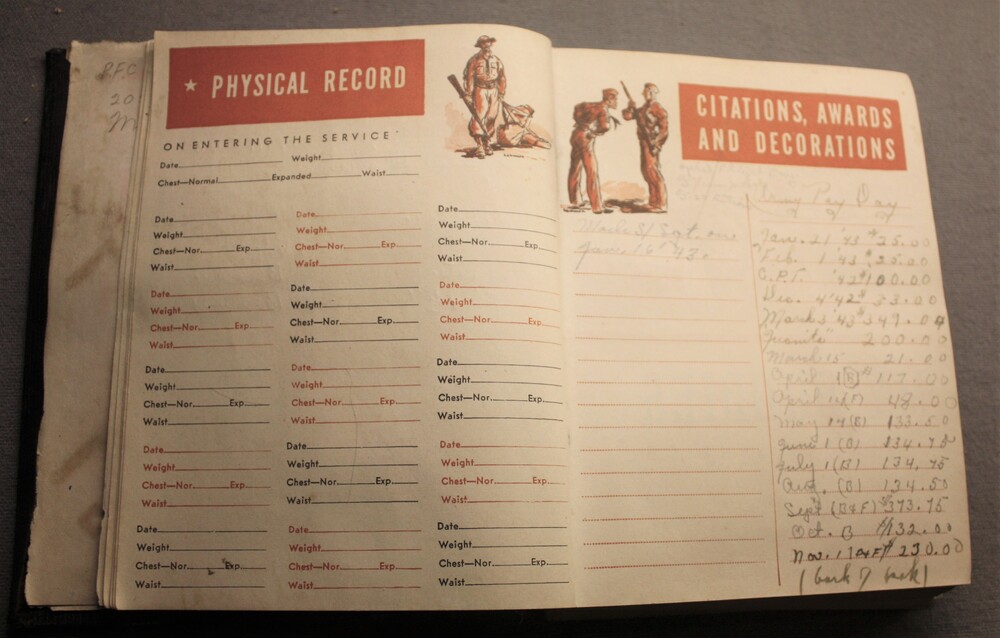 P.F.C
20
★ PHYSICAL RECORD
ON ENTERING THE SERVICE
Date Weight
Chest—Normal Expanded Waist
Date
Weight
Chest—Nor. Exp.
Waist
Date
Weight
Chest—Nor. Exp.
Waist
Date
Weight
Chest—Nor. Exp.
Waist
Date
Weight
Chest—Nor. Exp.
Waist
Date
Weight
Chest—Nor. Exp.
Waist
Date
Weight
Chest—Nor. Exp.
Waist
Date
Weight
Chest—Nor. Exp.
Waist
Date
Weight
Chest—Nor. Exp.
Waist
Date
Weight
Chest—Nor. Exp.
Waist
Date
Weight
Chest—Nor. Exp.
Waist
Date
Weight
Chest—Nor. Exp.
Waist
Date
Weight
Chest—Nor. Exp.
Waist
Date
Weight
Chest—Nor. Exp.
Waist
Date
Weight
Chest—Nor. Exp.
Waist
Date
Weight
Chest—Nor. Exp.
Waist
CITATIONS, AWARDS
AND DECORATIONS
Made S/Sgt on
Jan. 16 '43.
Army Pay Day
Jan. 21 '43 $25.00
Feb. 1 '43 $25.00
'42 $100.00
Dec. 4 '42 $33.00
March 3 '43 $349.04
Juanita 200.00
March 15 21.00
April 1 (B) $117.00
April 48.00
May 14 (B) 133.50
June 1 (B) 134.75
July 1 (B) 134.75
Aug. (B) 134.50
Sept (B&F) $373.75
Oct. B $132.00
Nov. 1 $230.00
(back of book)